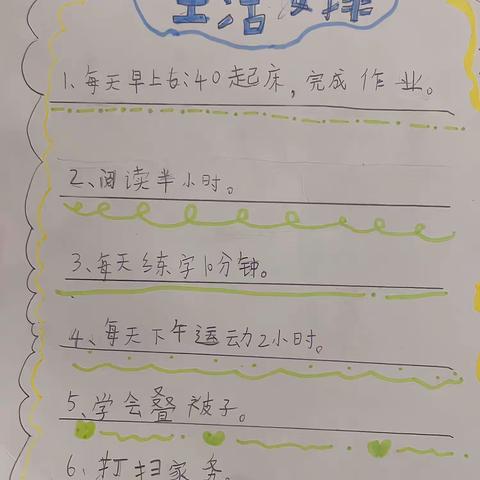 生活安排
1、每天早上6:40起床，完成作业。
2、阅读半小时。
3、每天练字10分钟。
4、每天下午运动2小时。
5、学会叠被子。
6、打扫家务。